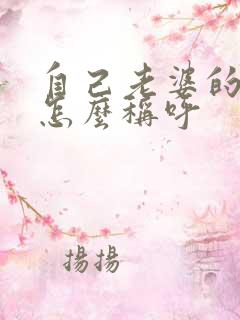 自己老婆的
怎麼稱呼
揚揚